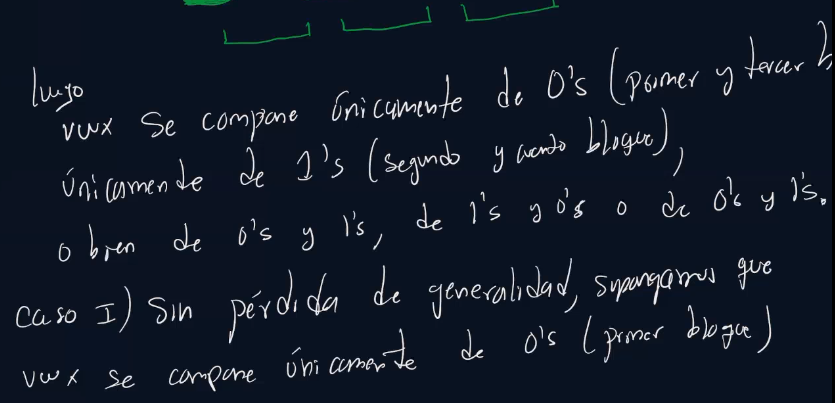 luego
vwx se compone únicamente de 0's (primer y tercer b
únicamente de 1's (segundo y cuarto bloque),
o bien de 0's y 1's, de 1's y 0's o de 0's y 1's.
caso I) Sin pérdida de generalidad, supongamos que
vwx se compone únicamente de 0's (primer bloque)